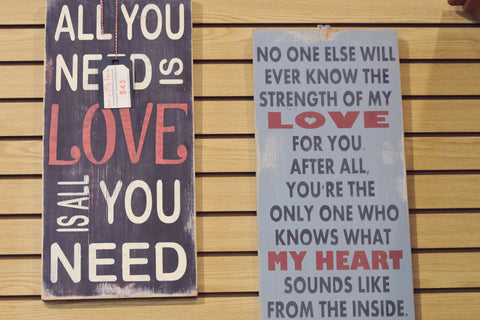 ALL YOU
NEED IS
LOVE
IS ALL YOU
NEED
$45
NO ONE ELSE WILL
EVER KNOW THE
STRENGTH OF MY
LOVE
FOR YOU.
AFTER ALL,
YOU'RE THE
ONLY ONE WHO
KNOWS WHAT
MY HEART
SOUNDS LIKE
FROM THE INSIDE.